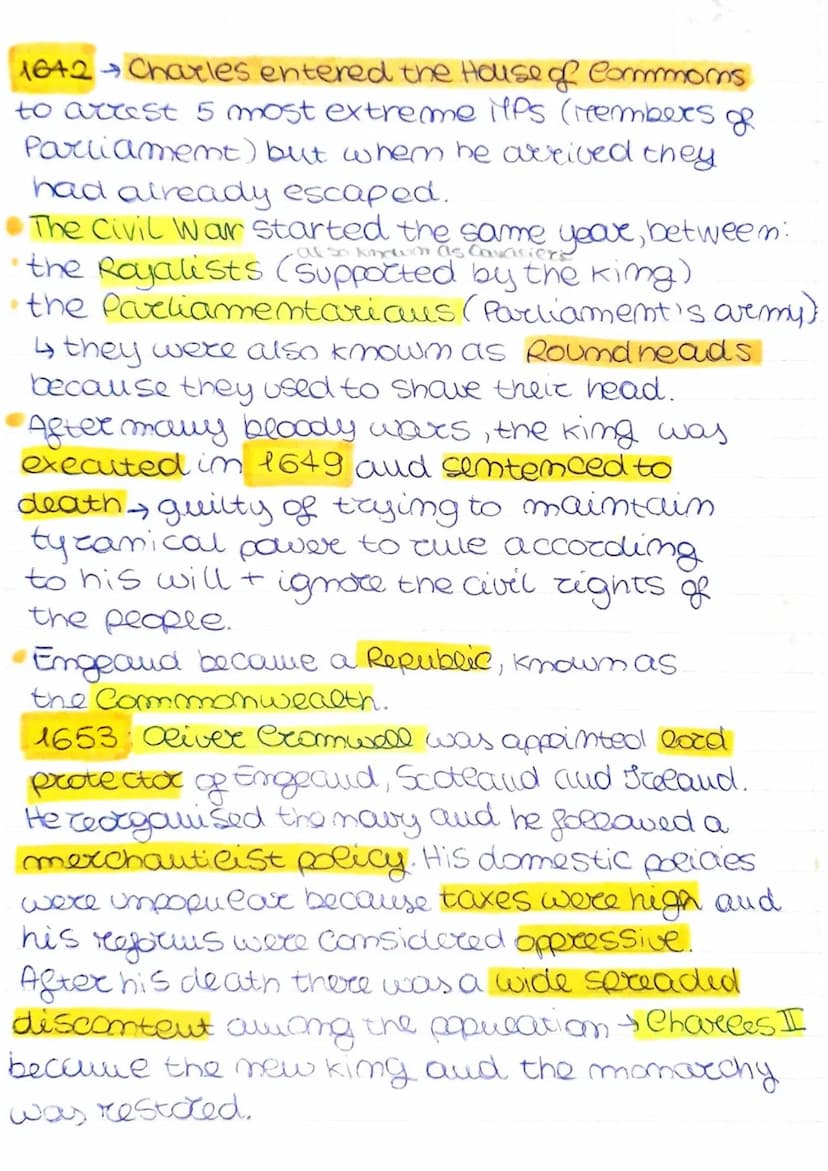 1642 → Charles entered the House of Commons
to arrest 5 most extreme MPs (Members of
Parliament) but when he arrived they
had already escaped.
• The Civil War started the same year, between:
also known as Cavaliers
• the Royalists (supported by the king)
• the Parliamentarians (Parliament's army)
↳ they were also known as Roundheads
because they used to shave their head.
• After many bloody wars, the king was
executed in 1649 and sentenced to
death → guilty of trying to maintain
tyranical power to rule according
to his will + ignore the civil rights of
the people.
• England became a Republic, known as
the Commonwealth.
1653: Oliver Cromwell was appointed lord
protector of England, Scotland and Ireland.
He reorganised the navy and he followed a
merchantilist policy. His domestic policies
were unpopular because taxes were high and
his reforms were considered oppressive.
After his death there was a wide spreaded
discontent among the population → Charles II
became the new king and the monarchy
was restored.